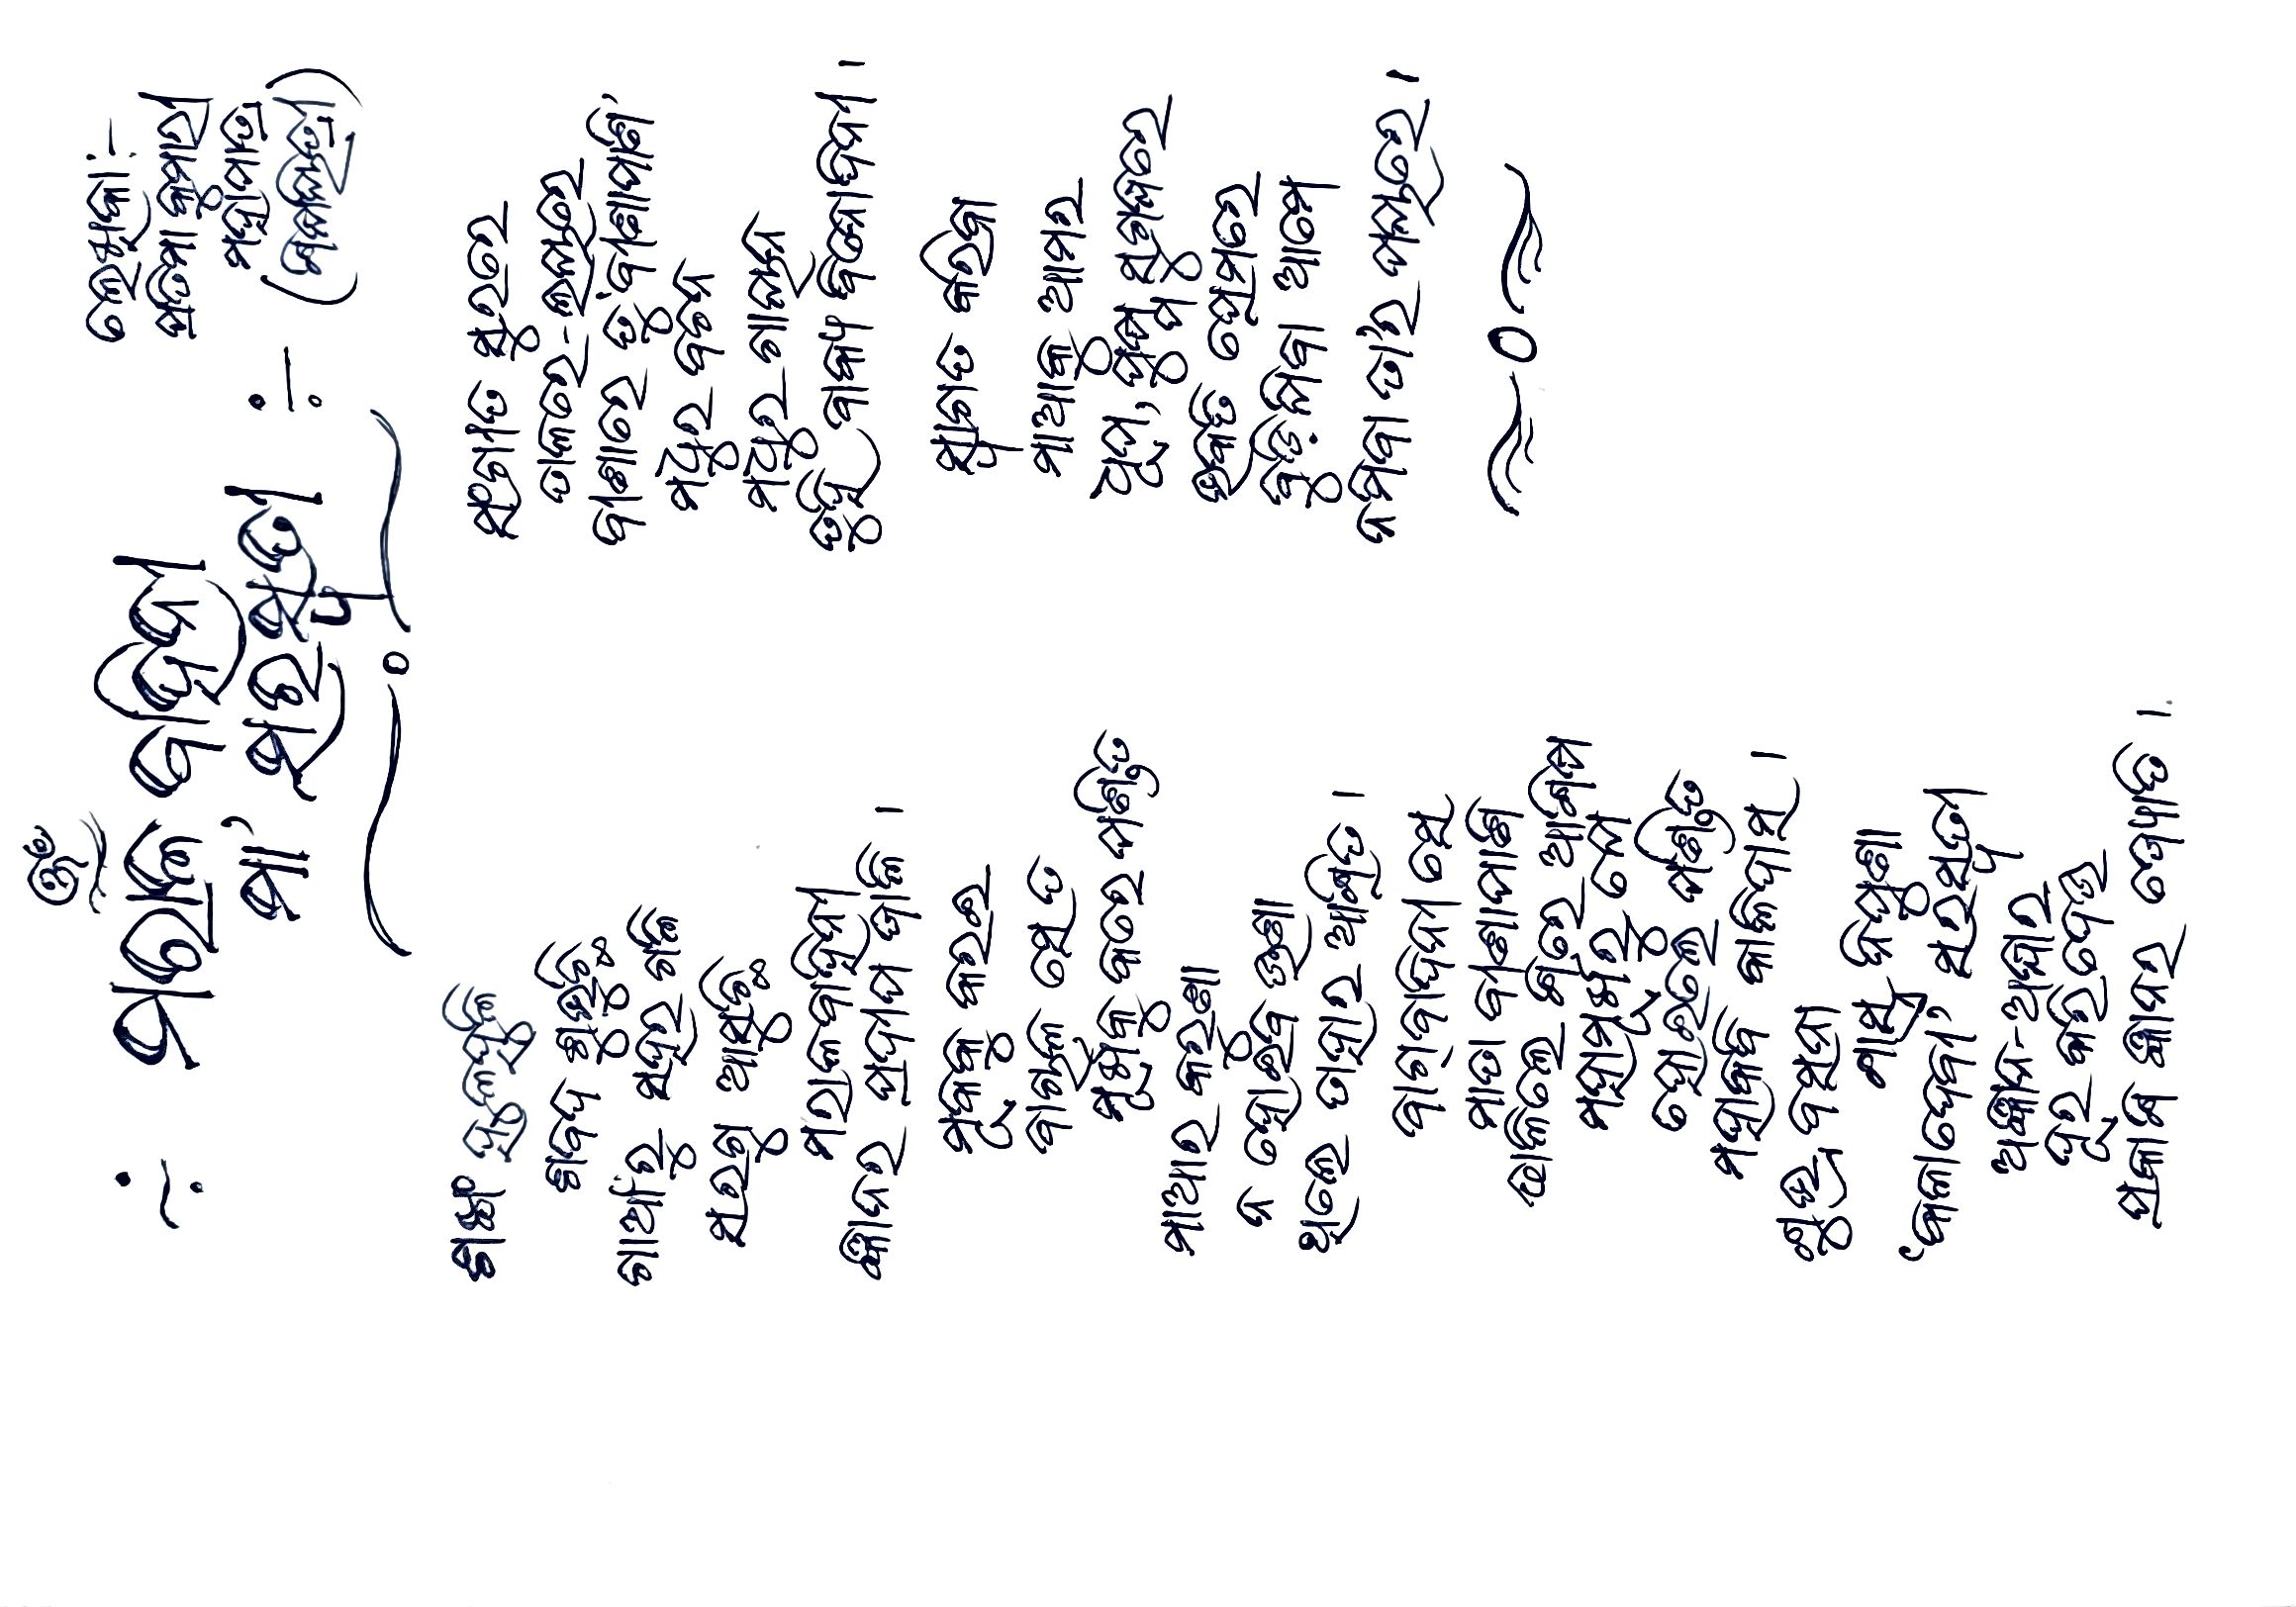 ଓଁ
ମରାଳ ବାହିନୀ
ମା' ସରସ୍ୱତୀ
ଲେଖିକା :-
ପ୍ରତିମା କୁମାରୀ
ମହାପାତ୍ର
(ଶିକ୍ଷୟିତ୍ରୀ)
ଶଙ୍ଖ ହୁଳହୁଳି
ଶବଦ ଶୁଭୁଛି
ଗାଆଁରୁ ସହର ଗଳି
ସରଗୁ ଆସୁଛି
ମରାଳବାହିନୀ
ଜ୍ଞାନର ପ୍ରଦୀପ ଜାଳି ।
ମୂକକୁ କରଇ
ବାଚାଳ ସେ ତ
ମୂର୍ଖକୁ କରେ ପଣ୍ଡିତ
ମାଆର କରୁଣା
ନ ହୋଇବ ଊଣା
ଥିଲେ ତାହାର ଆଶ୍ରିତ ।
ବାଗ୍‌ବାଦିନୀ ସେ
ମାତା ବୀଣାପାଣି
ଢାଳିଲେ ଶିରେ ଆଶିଷ
ମହାମୂର୍ଖରୁ ସେ
ହୋଇଲେ ପଣ୍ଡିତ
ମହାକବି କାଳିଦାସ ।
ଶୁଭ୍ର ବସନା
ଶାସ୍ତ୍ର ନିପୁଣା
'କଳାଦେବୀ' ସରସ୍ୱତୀ
ଅଜ୍ଞାନ-ଅନ୍ଧାର
ଦୂର କରି ଦେଉ
ପ୍ରକାଶି ଜ୍ଞାନର ଜ୍ୟୋତି ।
ସଂଗୀତ ସୁରରେ
ତାଳରେ-ଲୟରେ
ବୀଣାରେ ତୁ 'ବୀଣାପାଣି'
ମଧୁର ବଚନ
ମଧୁର ଗାୟନ
ତୁହି ବାକ୍ୟ ବିନୋଦିନୀ ।
ସ୍ୱାଗତ କରିବା
ମାଆକୁ ଆମର
ଧୂପ, ପୁଷ୍ପ ସୁଗନ୍ଧରେ
ଭକତି ପ୍ରେମରେ
ବୁଡ଼ିଯିବା ଆମେ
ନମିବା ତା'ର ପୟରେ ।